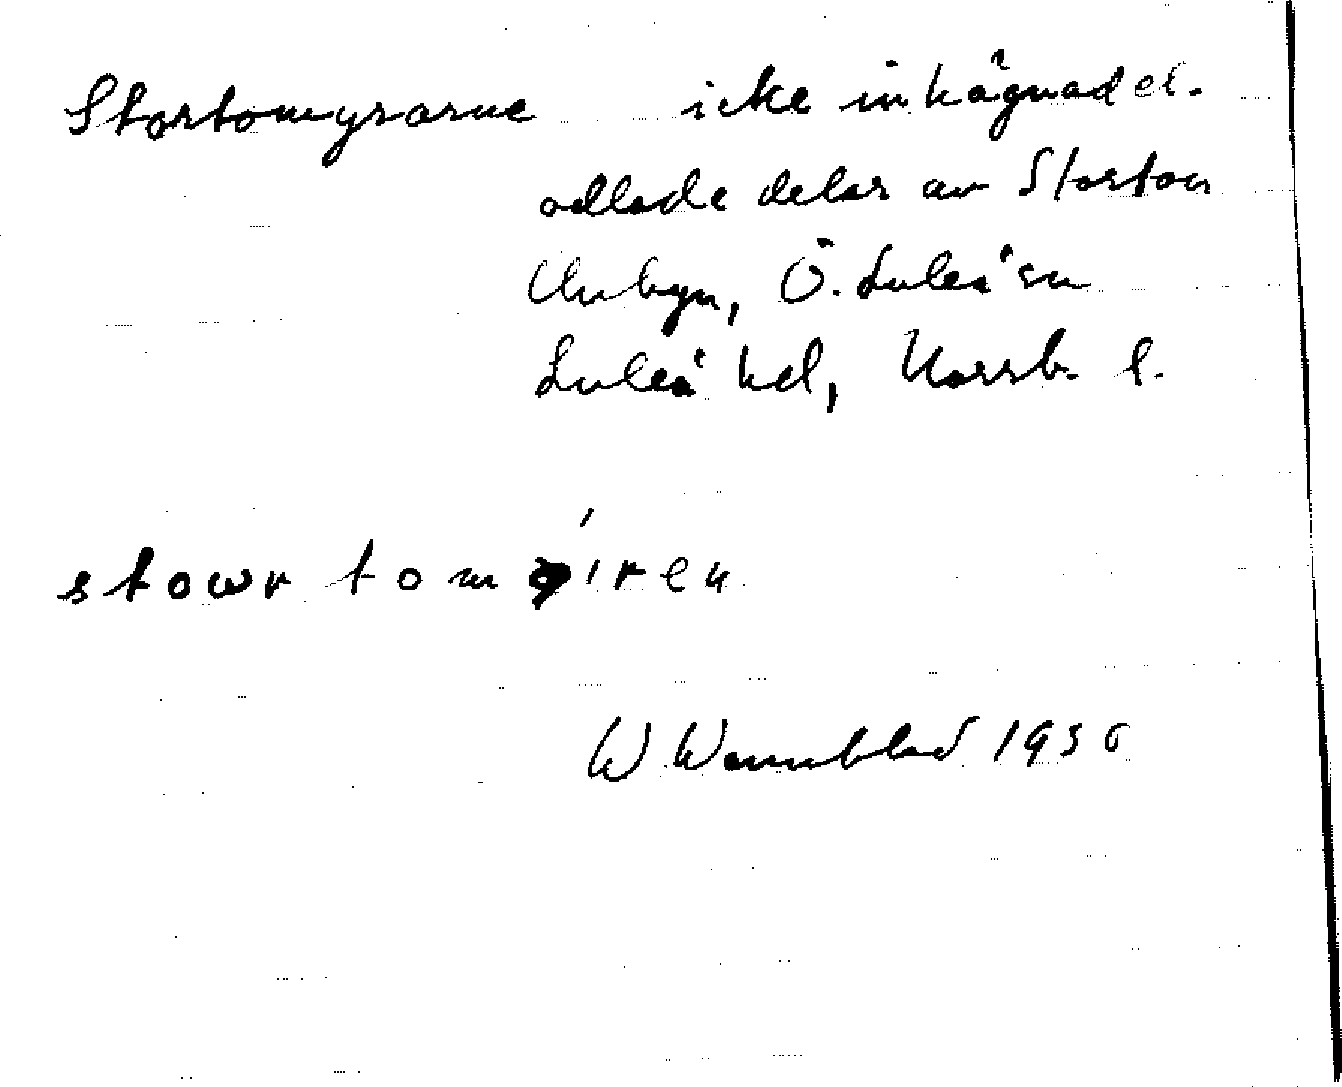 Stortomyrarne icke inhägnad el.
odlade delar av Storton
Unbyn, Ö. Luleå sn
Luleå hd, Norrb. l.
stowr tom yiren
W Wennblad 1930